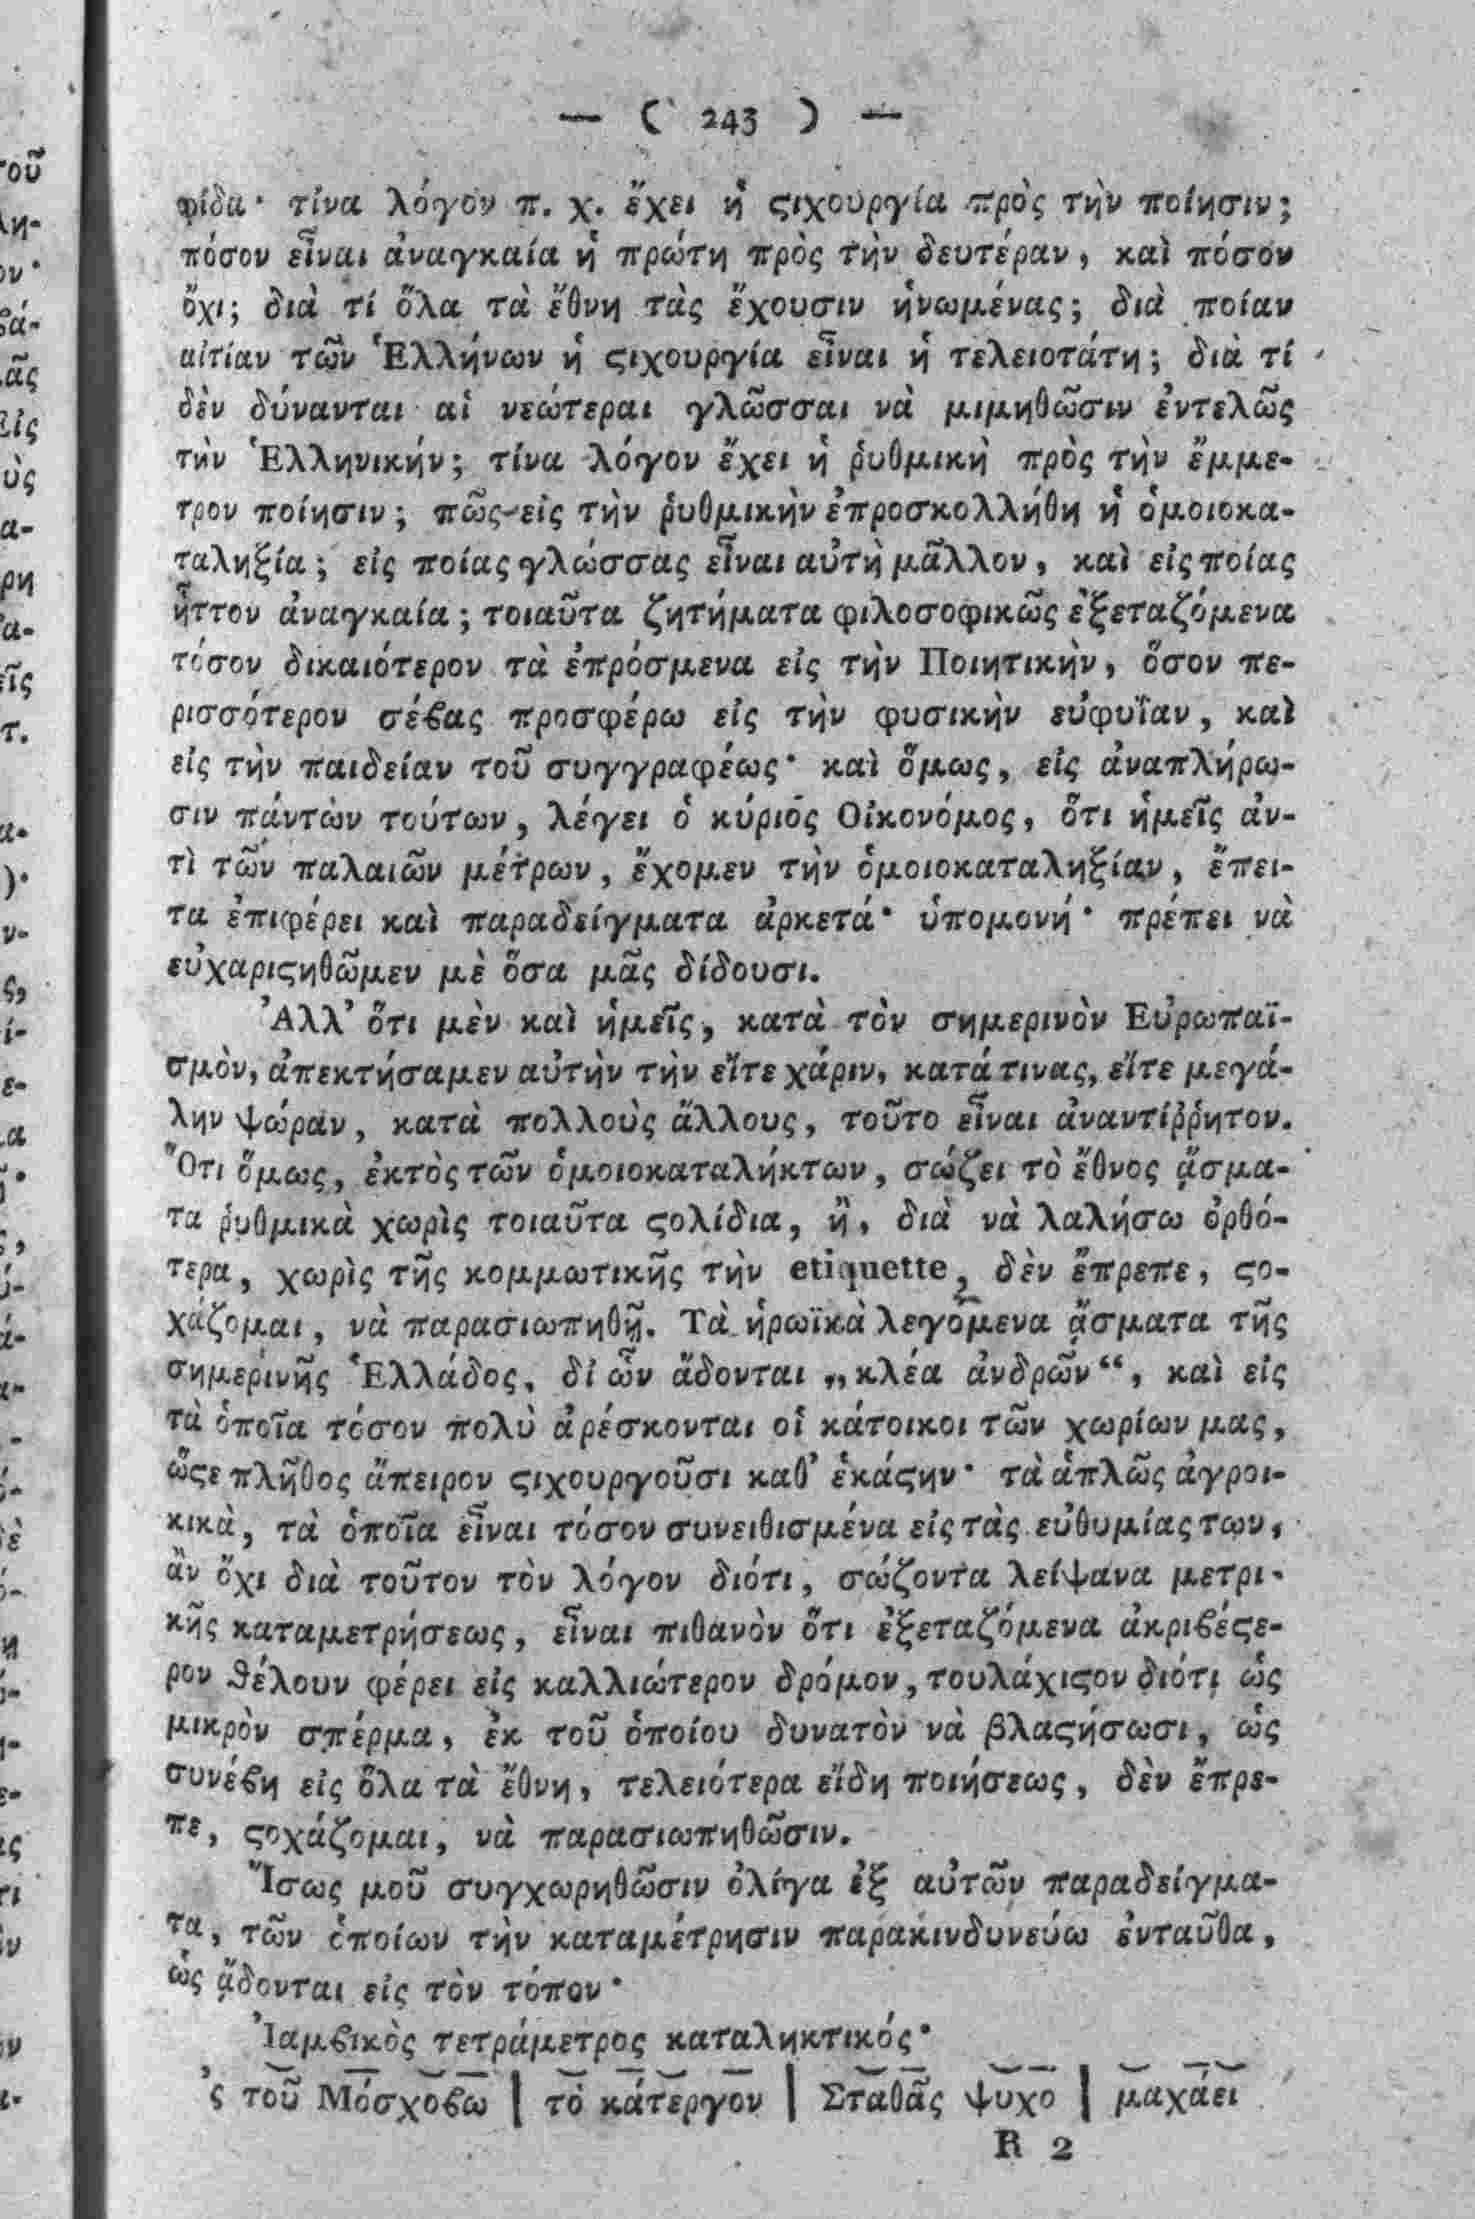 — ( 243 ) —
φίδα· τίνα λόγον π. χ. ἔχει ἡ ςιχουργία πρὸς τὴν ποίησιν;
πόσον εἶναι ἀναγκαία ἡ πρώτη πρὸς τὴν δευτέραν, καὶ πόσον
ὄχι; διὰ τί ὅλα τὰ ἔθνη τὰς ἔχουσιν ἡνωμένας; διὰ ποίαν
αἰτίαν τῶν Ἑλλήνων ἡ ςιχουργία εἶναι ἡ τελειοτάτη; διὰ τί
δὲν δύνανται αἱ νεώτεραι γλῶσσαι νὰ μιμηθῶσιν ἐντελῶς
τὴν Ἑλληνικήν; τίνα λόγον ἔχει ἡ ῥυθμικὴ πρὸς τὴν ἔμμε-
τρον ποίησιν; πῶς εἰς τὴν ῥυθμικὴν ἐπροσκολλήθη ἡ ὁμοιοκα-
ταληξία; εἰς ποίας γλώσσας εἶναι αὐτὴ μᾶλλον, καὶ εἰς ποίας
ἧττον ἀναγκαία; τοιαῦτα ζητήματα φιλοσοφικῶς ἐξεταζόμενα
τόσον δικαιότερον τὰ ἐπρόσμενα εἰς τὴν Ποιητικὴν, ὅσον πε-
ρισσότερον σέϐας προσφέρω εἰς τὴν φυσικὴν εὐφυΐαν, καὶ
εἰς τὴν παιδείαν τοῦ συγγραφέως· καὶ ὅμως, εἰς ἀναπλήρω-
σιν πάντων τούτων, λέγει ὁ κύριος Οἰκονόμος, ὅτι ἡμεῖς ἀν-
τὶ τῶν παλαιῶν μέτρων, ἔχομεν τὴν ὁμοιοκαταληξίαν, ἔπει-
τα ἐπιφέρει καὶ παραδείγματα ἀρκετά· ὑπομονή· πρέπει νὰ
εὐχαριςηθῶμεν μὲ ὅσα μᾶς δίδουσι.
Ἀλλ' ὅτι μὲν καὶ ἡμεῖς, κατὰ τὸν σημερινὸν Εὐρωπαϊ-
σμὸν, ἀπεκτήσαμεν αὐτὴν τὴν εἴτε χάριν, κατά τινας, εἴτε μεγά-
λην ψώραν, κατὰ πολλοὺς ἄλλους, τοῦτο εἶναι ἀναντίῤῥητον.
Ὅτι ὅμως, ἐκτὸς τῶν ὁμοιοκαταλήκτων, σώζει τὸ ἔθνος ᾄσμα-
τα ῥυθμικὰ χωρὶς τοιαῦτα ςολίδια, ἢ, διὰ νὰ λαλήσω ὀρθό-
τερα, χωρὶς τῆς κομμωτικῆς τὴν etiquette, δὲν ἔπρεπε, ςο-
χάζομαι, νὰ παρασιωπηθῇ. Τὰ ἡρωϊκὰ λεγόμενα ᾄσματα τῆς
σημερινῆς Ἑλλάδος, δι ὧν ᾄδονται „κλέα ἀνδρῶν“, καὶ εἰς
τὰ ὁποῖα τόσον πολὺ ἀρέσκονται οἱ κάτοικοι τῶν χωρίων μας,
ὥςε πλῆθος ἄπειρον ςιχουργοῦσι καθ' ἑκάςην· τὰ ἁπλῶς ἀγροι-
κικὰ, τὰ ὁποῖα εἶναι τόσον συνειθισμένα εἰς τὰς εὐθυμίας των,
ἂν ὄχι διὰ τοῦτον τὸν λόγον διότι, σώζοντα λείψανα μετρι-
κῆς καταμετρήσεως, εἶναι πιθανὸν ὅτι ἐξεταζόμενα ἀκριϐέςε-
ρον θέλουν φέρει εἰς καλλιώτερον δρόμον, τουλάχιςον διότι ὡς
μικρὸν σπέρμα, ἐκ τοῦ ὁποίου δυνατὸν νὰ βλαςήσωσι, ὡς
συνέϐη εἰς ὅλα τὰ ἔθνη, τελειότερα εἴδη ποιήσεως, δὲν ἔπρε-
πε, ςοχάζομαι, νὰ παρασιωπηθῶσιν.
Ἴσως μοῦ συγχωρηθῶσιν ὀλίγα ἐξ αὐτῶν παραδείγμα-
τα, τῶν ὁποίων τὴν καταμέτρησιν παρακινδυνεύω ἐνταῦθα,
ὡς ᾄδονται εἰς τὸν τόπον·
Ἰαμϐικὸς τετράμετρος καταληκτικός·
'ς τοῦ Μόσχοϐω | τὸ κάτεργον | Σταθᾶς ψυχο | μαχάει
R 2